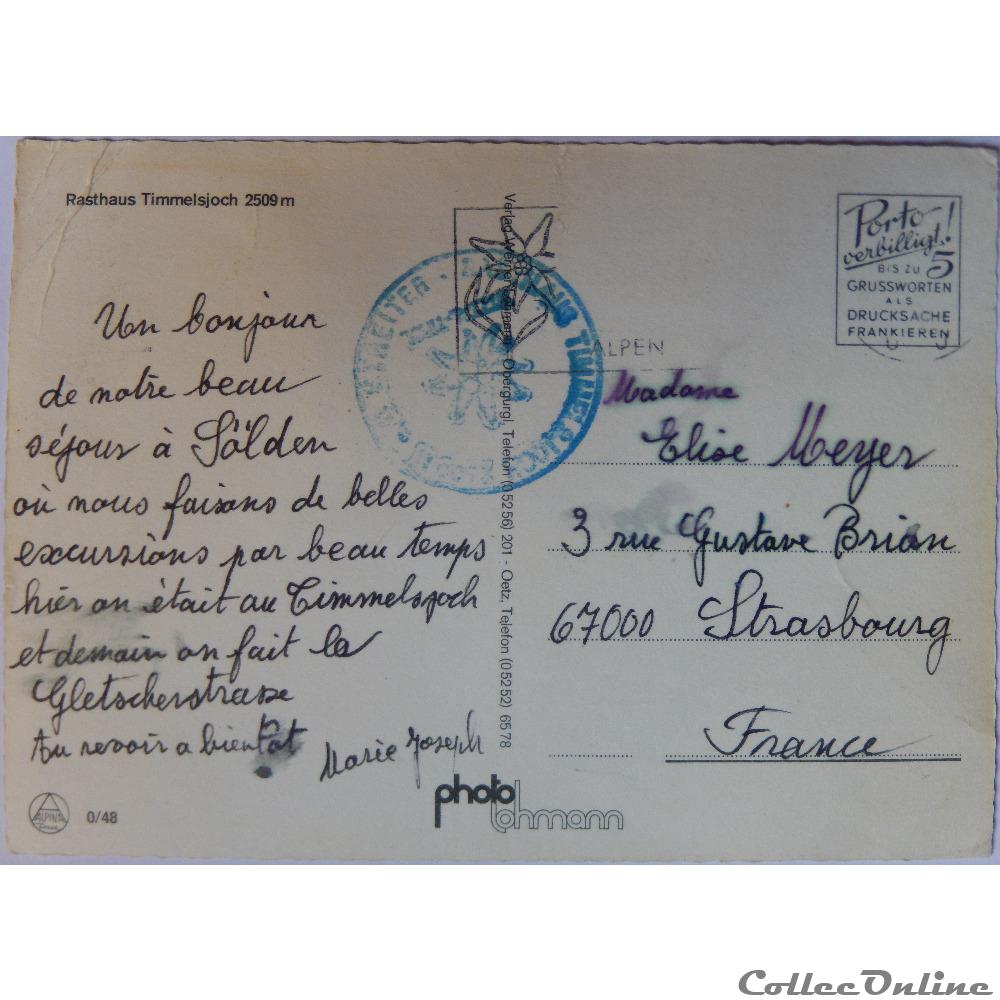 Rasthaus Timmelsjoch 2509 m
Un bonjour
de notre beau
séjour à Sölden
où nous faisons de belles
excursions par beau temps
hier on était au Timmelsjoch
et demain on fait la
Gletscherstrasse
Au revoir a bientot
Marie Joseph
ALPINA
0/48
photo
lohmann
Verlag Obergurgl, Telefon (05256) 201 - Oetz, Telefon (05252) 6578
ALPEN
Porto
verbilligt!
BIS ZU 5
GRUSSWORTEN
ALS
DRUCKSACHE
FRANKIEREN
Madame
Elise Meyer
3 rue Gustave Brion
67000 Strasbourg
France
CollecOnline